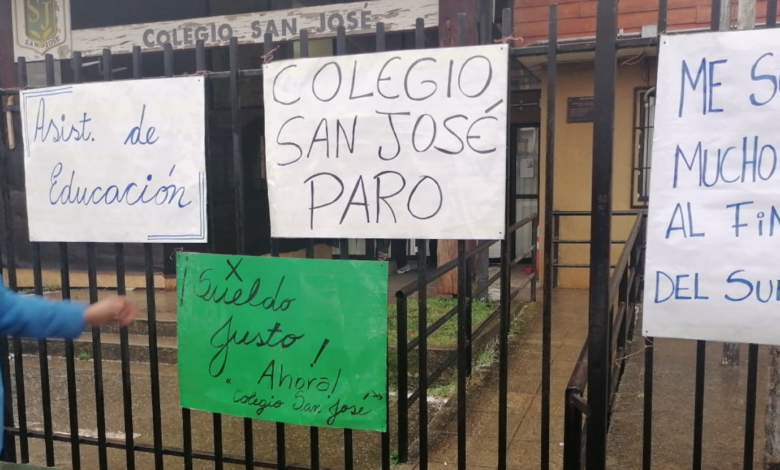 SJ
SAN PEDRO
COLEGIO SAN JOSÉ
Asist. de
Educación
COLEGIO
SAN JOSÉ
PARO
ME S
MUCHO
AL FIN
DEL SU
¡ x
Sueldo
Justo!
Ahora!
"Colegio San José"